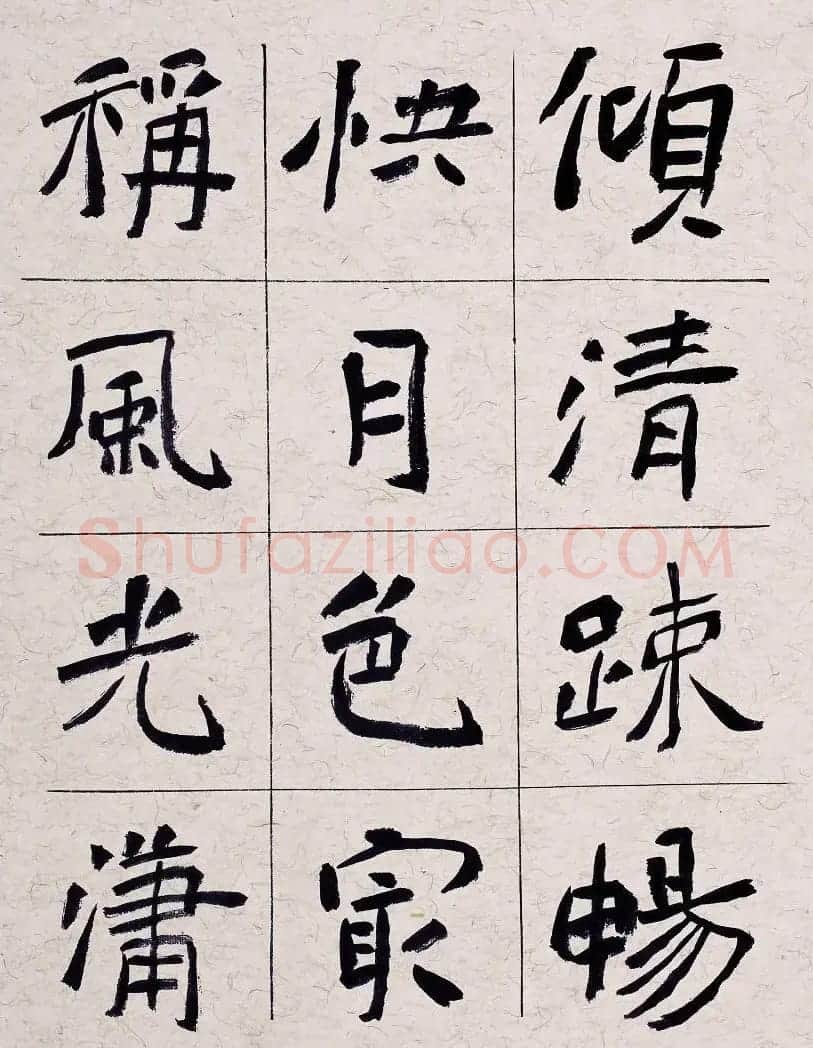 傾清踈暢
快月色㝡
稱風光瀟
Shufaziliao.COM